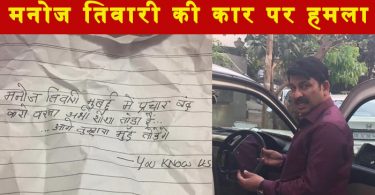 मनोज तिवारी की कार पर हमला
मनोज तिवारी मुंबई में प्रचार बंद
करो वरना अभी शीशा तोड़ा है
... आगे तुम्हारा मुँह तोड़ेंगे
— YOU KNOW US